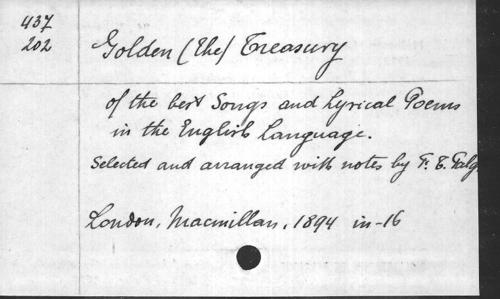 437
202
Golden (The) Treasury
of the best Songs and Lyrical Poems
in the English Language.
Selected and arranged with notes by F. T. Palg
London, Macmillan, 1894 in-16